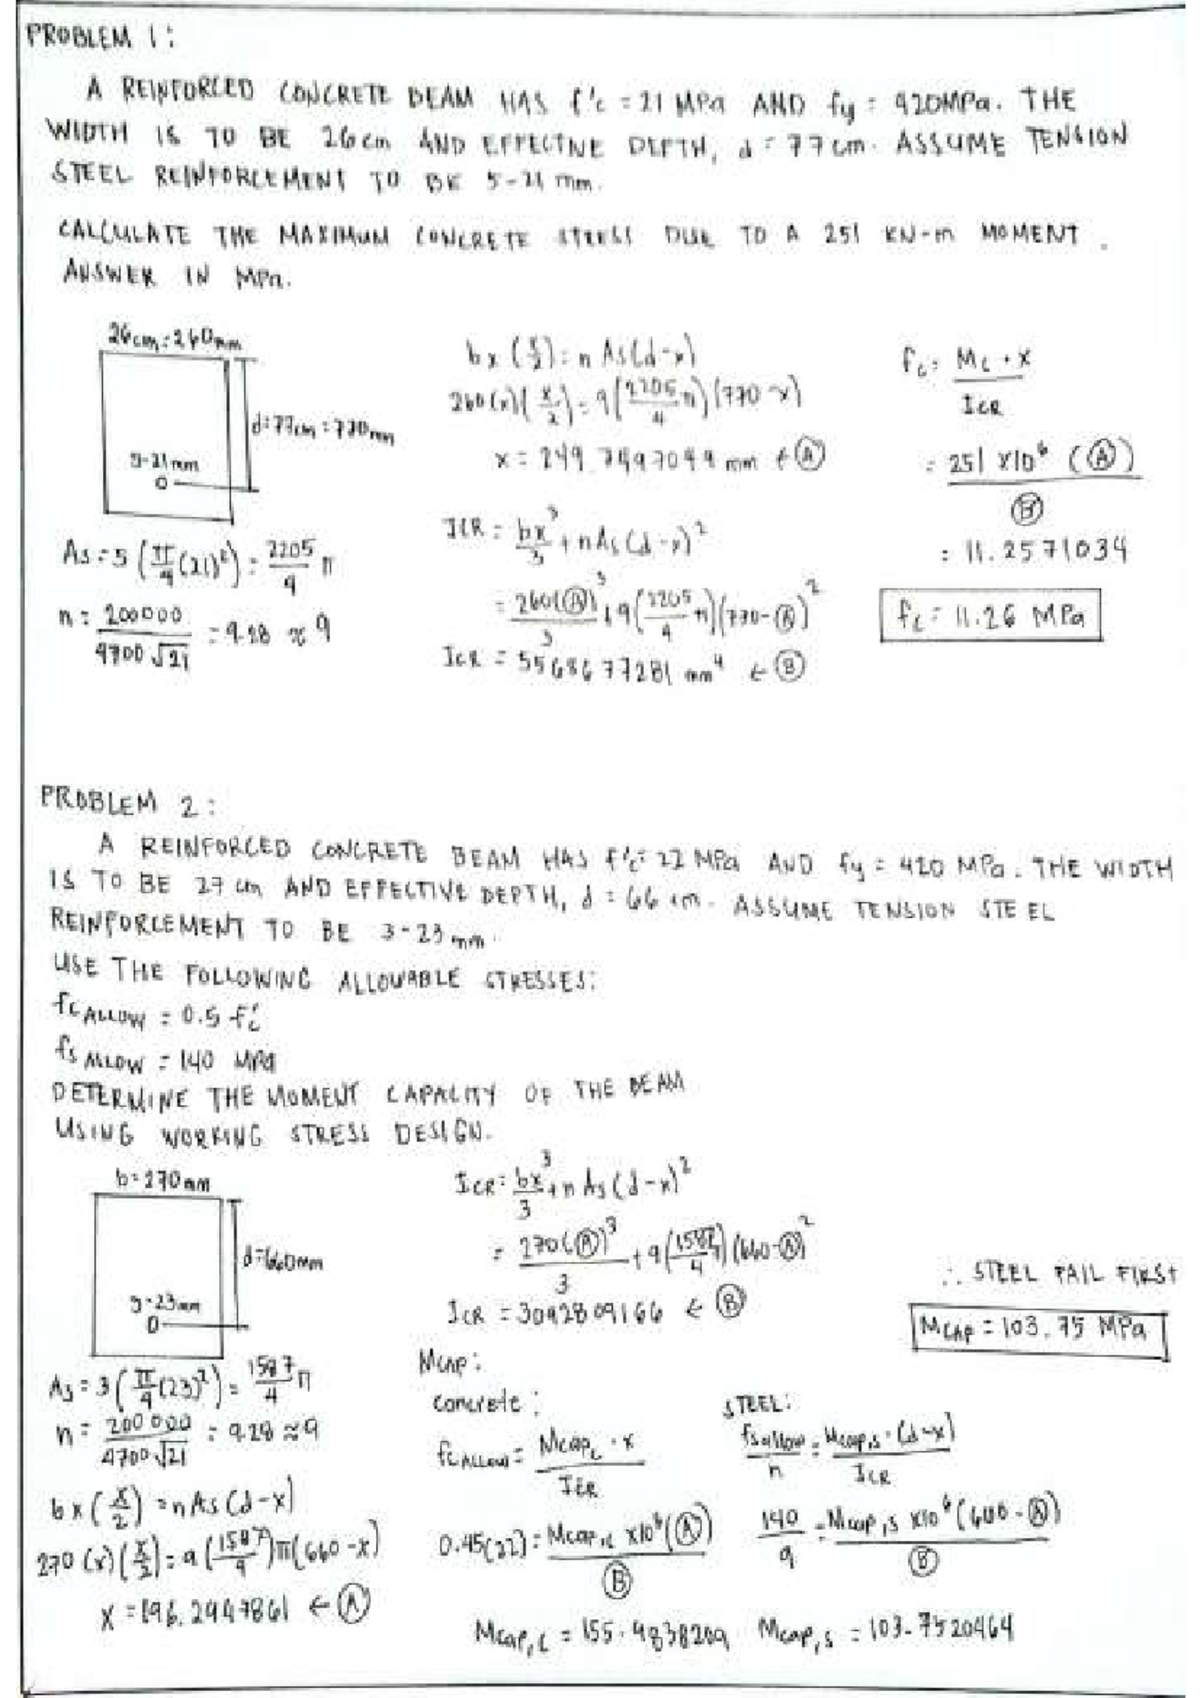 PROBLEM 1:
A REINFORCED CONCRETE BEAM HAS f'c = 21 MPa AND fy = 420MPa. THE
WIDTH IS TO BE 26cm AND EFFECTIVE DEPTH, d = 77cm. ASSUME TENSION
STEEL REINFORCEMENT TO BE 5-21 mm.
CALCULATE THE MAXIMUM CONCRETE STRESS DUE TO A 251 KN-m MOMENT.
ANSWER IN MPa.
26cm = 260mm
d = 77cm = 770mm
5-21mm
As = 5 (π/4 (21)²) = 2205/4 π
n = 200000 / 4700√21 = 9.28 ≈ 9
bx (x/2) = n As(d-x)
260(x)(x/2) = 9(2205/4 π)(770-x)
x = 249.7497099 mm ← Ⓐ
ICR = bx³/3 + nAs(d-x)²
= 260(Ⓐ)³/3 + 9(2205/4 π)(770-Ⓐ)²
ICR = 5568677281 mm⁴ ← Ⓑ
fc = Mc · x / ICR
= 251 x10⁶ (Ⓐ) / Ⓑ
= 11.2571034
fc = 11.26 MPa
PROBLEM 2:
A REINFORCED CONCRETE BEAM HAS f'c = 22 MPa AND fy = 420 MPa. THE WIDTH
IS TO BE 27 cm AND EFFECTIVE DEPTH, d = 66 cm. ASSUME TENSION STEEL
REINFORCEMENT TO BE 3-23 mm.
USE THE FOLLOWING ALLOWABLE STRESSES:
fc ALLOW = 0.5 f'c
fs ALLOW = 140 MPa
DETERMINE THE MOMENT CAPACITY OF THE BEAM
USING WORKING STRESS DESIGN.
b = 270mm
d = 660mm
3-23mm
As = 3(π/4 (23)²) = 1587/4 π
n = 200000 / 4700√21 = 9.28 ≈ 9
bx(x/2) = nAs(d-x)
270(x)(x/2) = 9(1587/4)π(660-x)
x = 196.2947861 ← Ⓐ
ICR = bx³/3 + nAs(d-x)²
= 270(Ⓐ)³/3 + 9(1587/4)(660-Ⓐ)²
ICR = 3092809166 ← Ⓑ
Mcap:
concrete:
fc ALLOW = Mcap,c · x / ICR
0.45(22) = Mcap,c x10⁶(Ⓐ) / Ⓑ
Mcap,c = 155.9838209
STEEL:
fsallow/n = Mcap,s · (d-x) / ICR
140/9 = Mcap,s x10⁶(660-Ⓐ) / Ⓑ
Mcap,s = 103.7520464
∴ STEEL FAIL FIRST
MCAP = 103.75 MPa